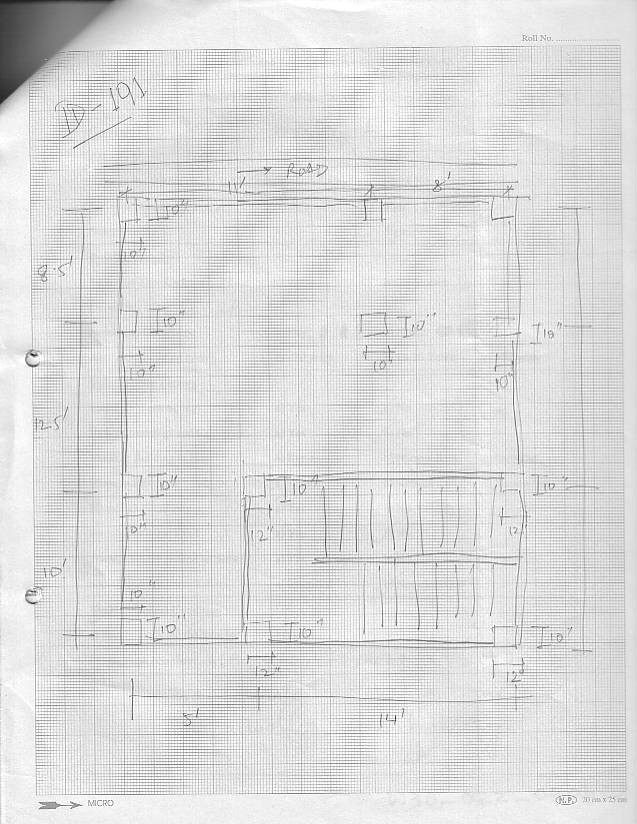 Roll No. ........................
ID-191
→ ROAD
11' 8'
10"
10"
8.5'
10" 10" 10"
10" 10" 10"
12.5'
10" 10" 10"
10" 12" 12
10'
10"
10" 10" 10"
12" 12"
5' 14'
MICRO
N.P. 20 cm x 25 cm